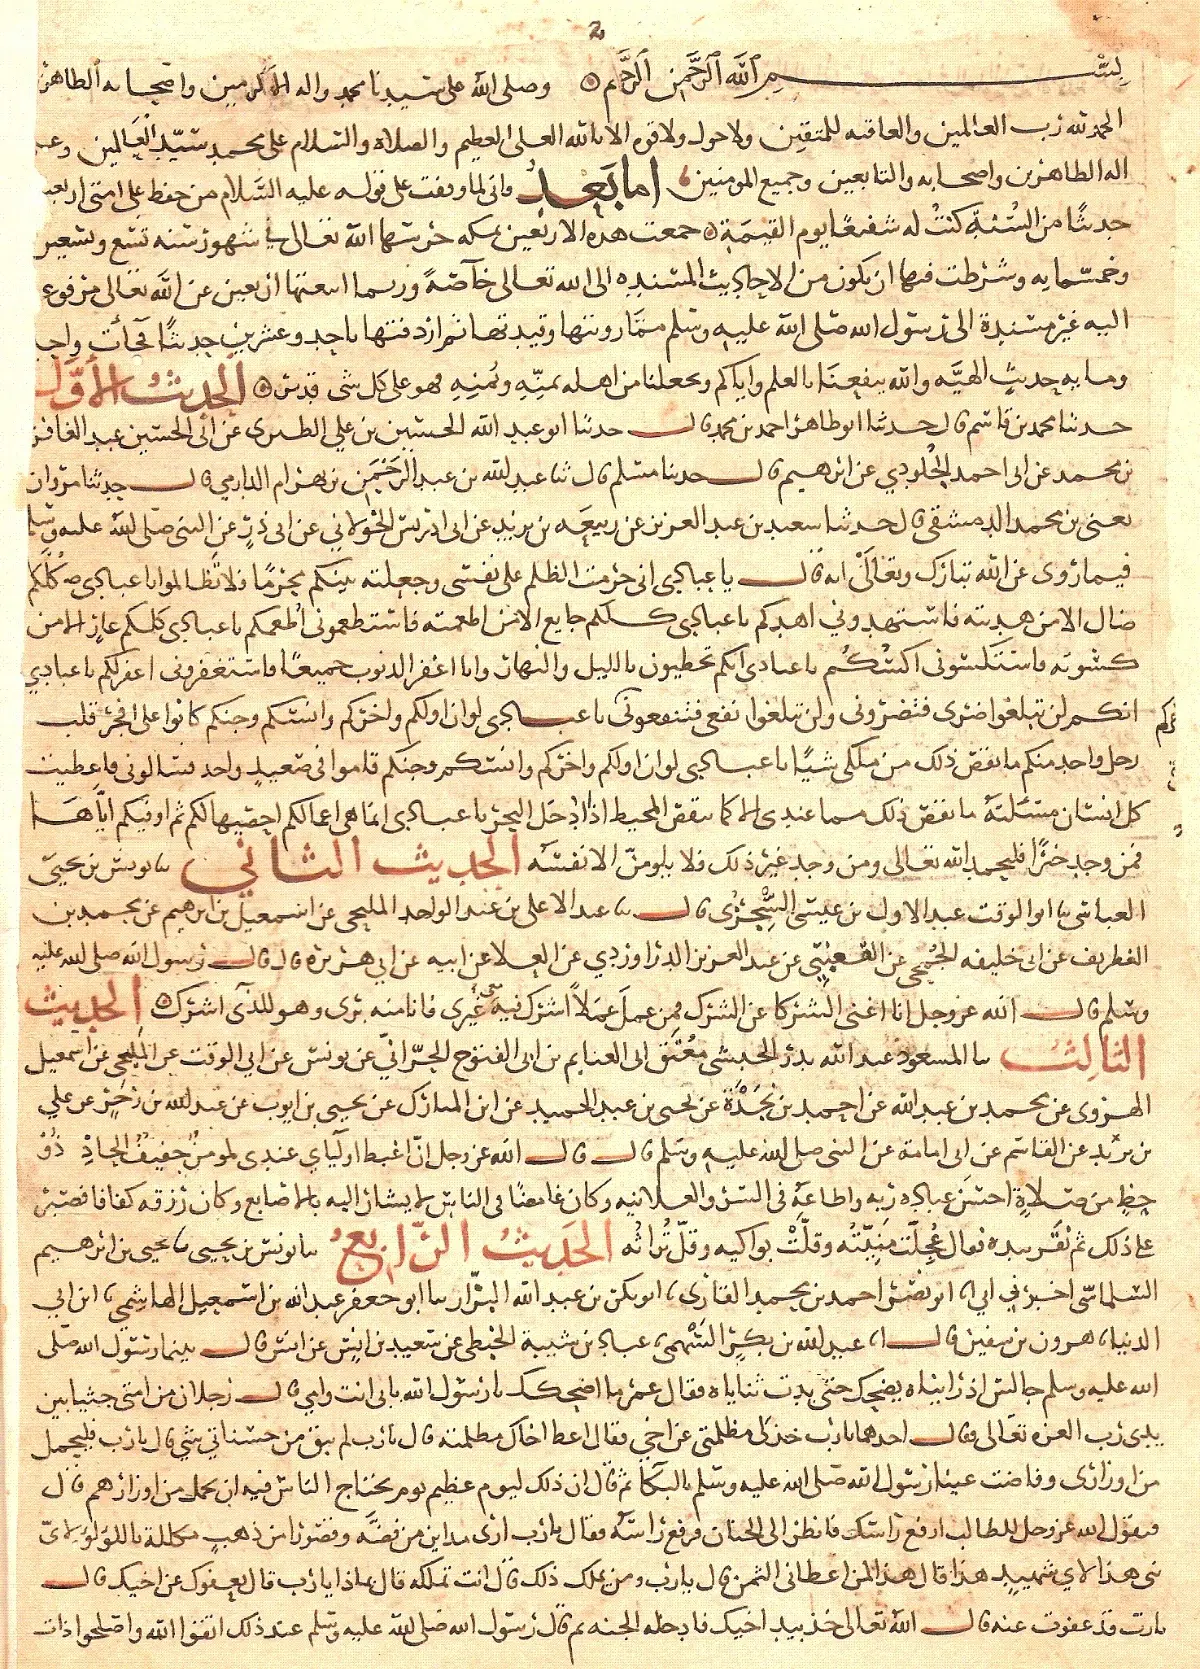 2
بسم الله الرحمن الرحيم ۞ وصلى الله على سيدنا محمد واله الاكرمين واصحابه الطاهر
الحمد لله رب العالمين والعاقبه للمتقين ولا حول ولا قوه الا بالله العلى العظيم والصلاه والسلام على محمد سيد العالمين وعلى
اله الطاهرين واصحابه والتابعين وجميع المومنين اما بعد فانى لما وقفت على قوله عليه السلام من حفظ على امتى اربعين
حديثا من السنة كنت له شفيعا يوم القيمة ۞ جمعت هذه الاربعين بمكه حرسها الله تعالى فى شهور سنه تسع وتسعين
وخمسمايه وشرطت فيها ان يكون من الاحاديث المسنده الى الله تعالى خاصة وربما اتبعتها اربعين عن الله تعالى مرفوعه
اليه غير مسندة الى رسول الله صلى الله عليه وسلم مما رويتها وقيدتها ثم اردفتها باحد وعشرين حديثا فجأت واحد
ومايه حديث الهيه والله ينفعنا بالعلم واياكم ويجعلنا من اهله بمنه ويمنه فهو على كل شى قدير ۞ الحديث الاول
حدثنا محمد بن قاسم قال حدثنا ابو طاهر احمد بن محمد قال حدثنا ابو عبد الله الحسين بن علي الطبرى عن ابى الحسين عبد الغافر
بن محمد عن ابى احمد الجلودي عن ابرهيم قال حدثنا مسلم قال ثنا عبد الله بن عبد الرحمن بن بهرام الدارمي قال حدثنا مروان
يعنى بن محمد الدمشقى قال حدثنا سعيد بن عبد العزيز عن ربيعه بن يزيد عن ابى ادريس الخولاني عن ابى ذر عن النبى صلى الله عليه وسلم
فيما روى عن الله تبارك وتعالى انه قال يا عبادى انى حرمت الظلم على نفسى وجعلته بينكم محرما فلا تظالموا يا عبادى كلكم
ضال الا من هديته فاستهدونى اهدكم يا عبادى كلكم جايع الا من اطعمته فاستطعمونى اطعمكم يا عبادى كلكم عار الا من
كسوته فاستكسونى اكسكم يا عبادى انكم تخطيون بالليل والنهار وانا اغفر الذنوب جميعا فاستغفرونى اغفر لكم يا عبادي
انكم لن تبلغوا ضرى فتضرونى ولن تبلغوا نفعى فتنفعونى يا عبادى لو ان اولكم واخركم وانسكم وجنكم كانوا على افجر قلب
رجل واحد منكم ما نقص ذلك من ملكى شيئا يا عبادى لو ان اولكم واخركم وانسكم وجنكم قاموا فى صعيد واحد فسالونى فاعطيت
كل انسان مسئلته ما نقص ذلك مما عندى الا كما ينقص المخيط اذا ادخل البحر يا عبادى انما هى اعمالكم احصيها لكم ثم اوفيكم اياها
فمن وجد خيرا فليحمد الله تعالى ومن وجد غير ذلك فلا يلومن الا نفسه الحديث الثانى ثنا يونس بن يحيى
العباسى ثنا ابو الوقت عبد الاول بن عيسى السجزى قال ثنا عبد الاعلى بن عبد الواحد المليحى عن اسمعيل بن ابرهيم عن محمد بن
الغطريف عن ابى خليفه الجمحى عن القعنبى عن عبد العزيز الدراوردي عن العلا عن ابيه عن ابي هريرة قال قال رسول الله صلى الله عليه
وسلم قال الله عز وجل انا اغنى الشركا عن الشرك فمن عمل عملا اشرك فيه غيرى فانا منه برى وهو للذى اشرك ۞ الحديث
الثالث ثنا المسعود عبد الله بدر الحبشى معتق ابى الغنايم بن ابى الفتوح الحرانى عن يونس عن ابى الوقت عن المليحى عن اسمعيل
الهروى عن محمد بن عبد الله عن احمد بن نجدة عن يحيى بن عبد الحميد عن ابن المبارك عن يحيى بن ايوب عن عبد الله بن زحر عن علي
بن يزيد عن القاسم عن ابى امامة عن النبى صلى الله عليه وسلم قال قال الله عز وجل ان اغبط اوليآي عندى لمومن خفيف الحاذ ذو
حظ من صلاة احسن عبادة ربه واطاعه فى السر والعلانيه وكان غامضا فى الناس لا يشار اليه بالاصابع وكان رزقه كفافا فصبر
على ذلك ثم نقر بيده فقال عجلت منيته وقلت بواكيه وقل تراثه الحديث الرابع ثنا يونس بن يحيى ثنا يحيى بن ابرهيم
السلماسى اخبرنى ابى انا ابو نصر احمد بن محمد القارى ابو بكر بن عبد الله البزار ثنا ابو جعفر عبد الله بن اسمعيل الهاشمى ابن ابي
الدنيا هرون بن سفين قال عبد الله بن بكر السهمى عباد بن شيبة الحبطى عن سعيد بن انس عن انس قال بينما رسول الله صلى
الله عليه وسلم جالس اذ رايناه يضحك حتى بدت ثناياه فقال عمر ما اضحكك يا رسول الله بابى انت وامي قال رجلان من امتى جثيا بين
يدى رب العزه تعالى فقال احدهما يا رب خذ لى مظلمتى عن اخى فقال اعط اخاك مظلمته قال يا رب لم يبق من حسناتى شي قال يا رب فليحمل
من اوزارى وفاضت عينا رسول الله صلى الله عليه وسلم بالبكا ثم قال ان ذلك ليوم عظيم يوم يحتاج الناس فيه ان يحمل من اوزارهم قال
فيقول الله عز وجل للطالب ارفع راسك فانظر الى الجنان فرفع راسه فقال يا رب ارى مداين من فضة وقصورا من ذهب مكللة باللؤلؤ لاى
نبى هذا لاى شهيد هذا قال هذا لمن اعطانى الثمن قال يا رب ومن يملك ذلك قال انت تملكه قال بماذا يا رب قال بعفوك عن اخيك قال
يا رب قد عفوت عنه قال الله تعالى خذ بيد اخيك فادخله الجنه ثم قال رسول الله صلى الله عليه وسلم عند ذلك اتقوا الله واصلحوا ذات